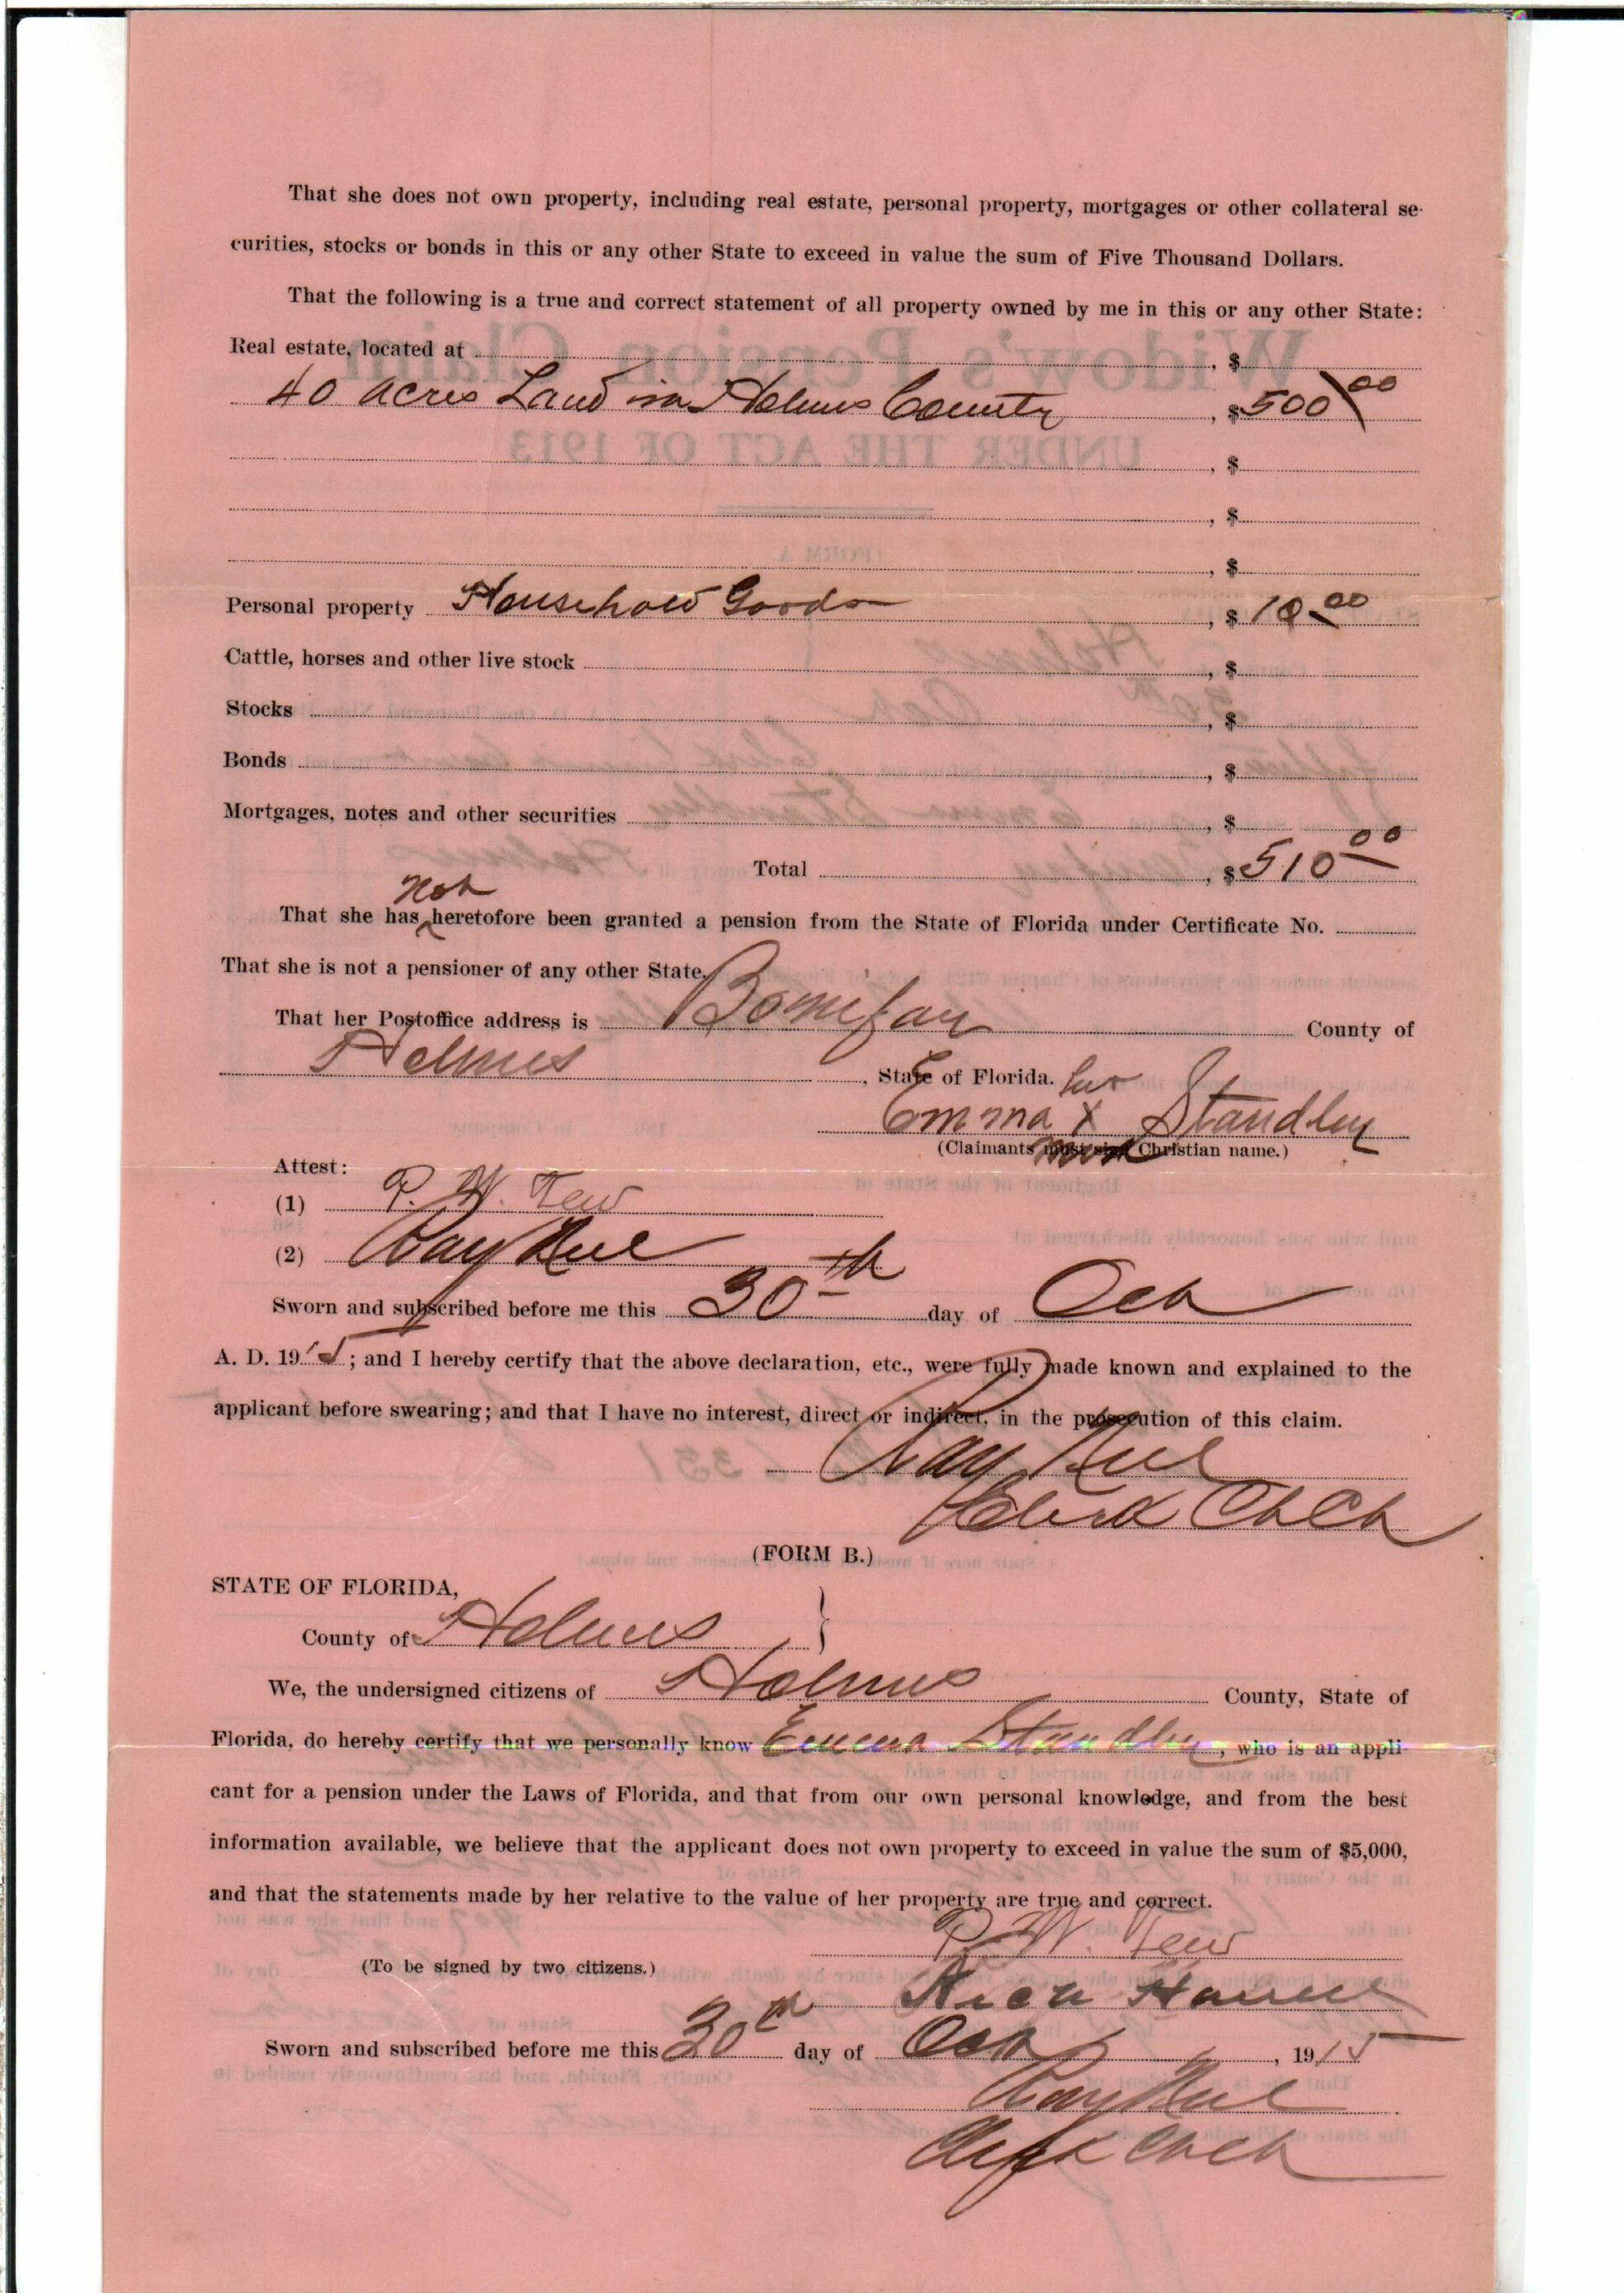 That she does not own property, including real estate, personal property, mortgages or other collateral se-
curities, stocks or bonds in this or any other State to exceed in value the sum of Five Thousand Dollars.
That the following is a true and correct statement of all property owned by me in this or any other State:
Real estate, located at , $
40 acres Land in Holmes County , $ 500 00
, $
, $
, $
Personal property Household Goods , $ 10 00
Cattle, horses and other live stock , $
Stocks , $
Bonds , $
Mortgages, notes and other securities , $
Total , $ 510 00
not
That she has heretofore been granted a pension from the State of Florida under Certificate No.
That she is not a pensioner of any other State.
That her Postoffice address is Bonifay County of
Holmes , State of Florida.
her
Emma X Standley
(Claimants must sign Christian name.)
mark
Attest:
(1) P. W. Tew
(2)
Sworn and subscribed before me this 30th day of Oct
A. D. 1915; and I hereby certify that the above declaration, etc., were fully made known and explained to the
applicant before swearing; and that I have no interest, direct or indirect, in the prosecution of this claim.
Clerk
(FORM B.)
STATE OF FLORIDA,
County of Holmes }
We, the undersigned citizens of Holmes County, State of
Florida, do hereby certify that we personally know Emma Standley, who is an appli-
cant for a pension under the Laws of Florida, and that from our own personal knowledge, and from the best
information available, we believe that the applicant does not own property to exceed in value the sum of $5,000,
and that the statements made by her relative to the value of her property are true and correct.
P. W. Tew
(To be signed by two citizens.)
Sworn and subscribed before me this 30th day of Oct , 1915
Clerk